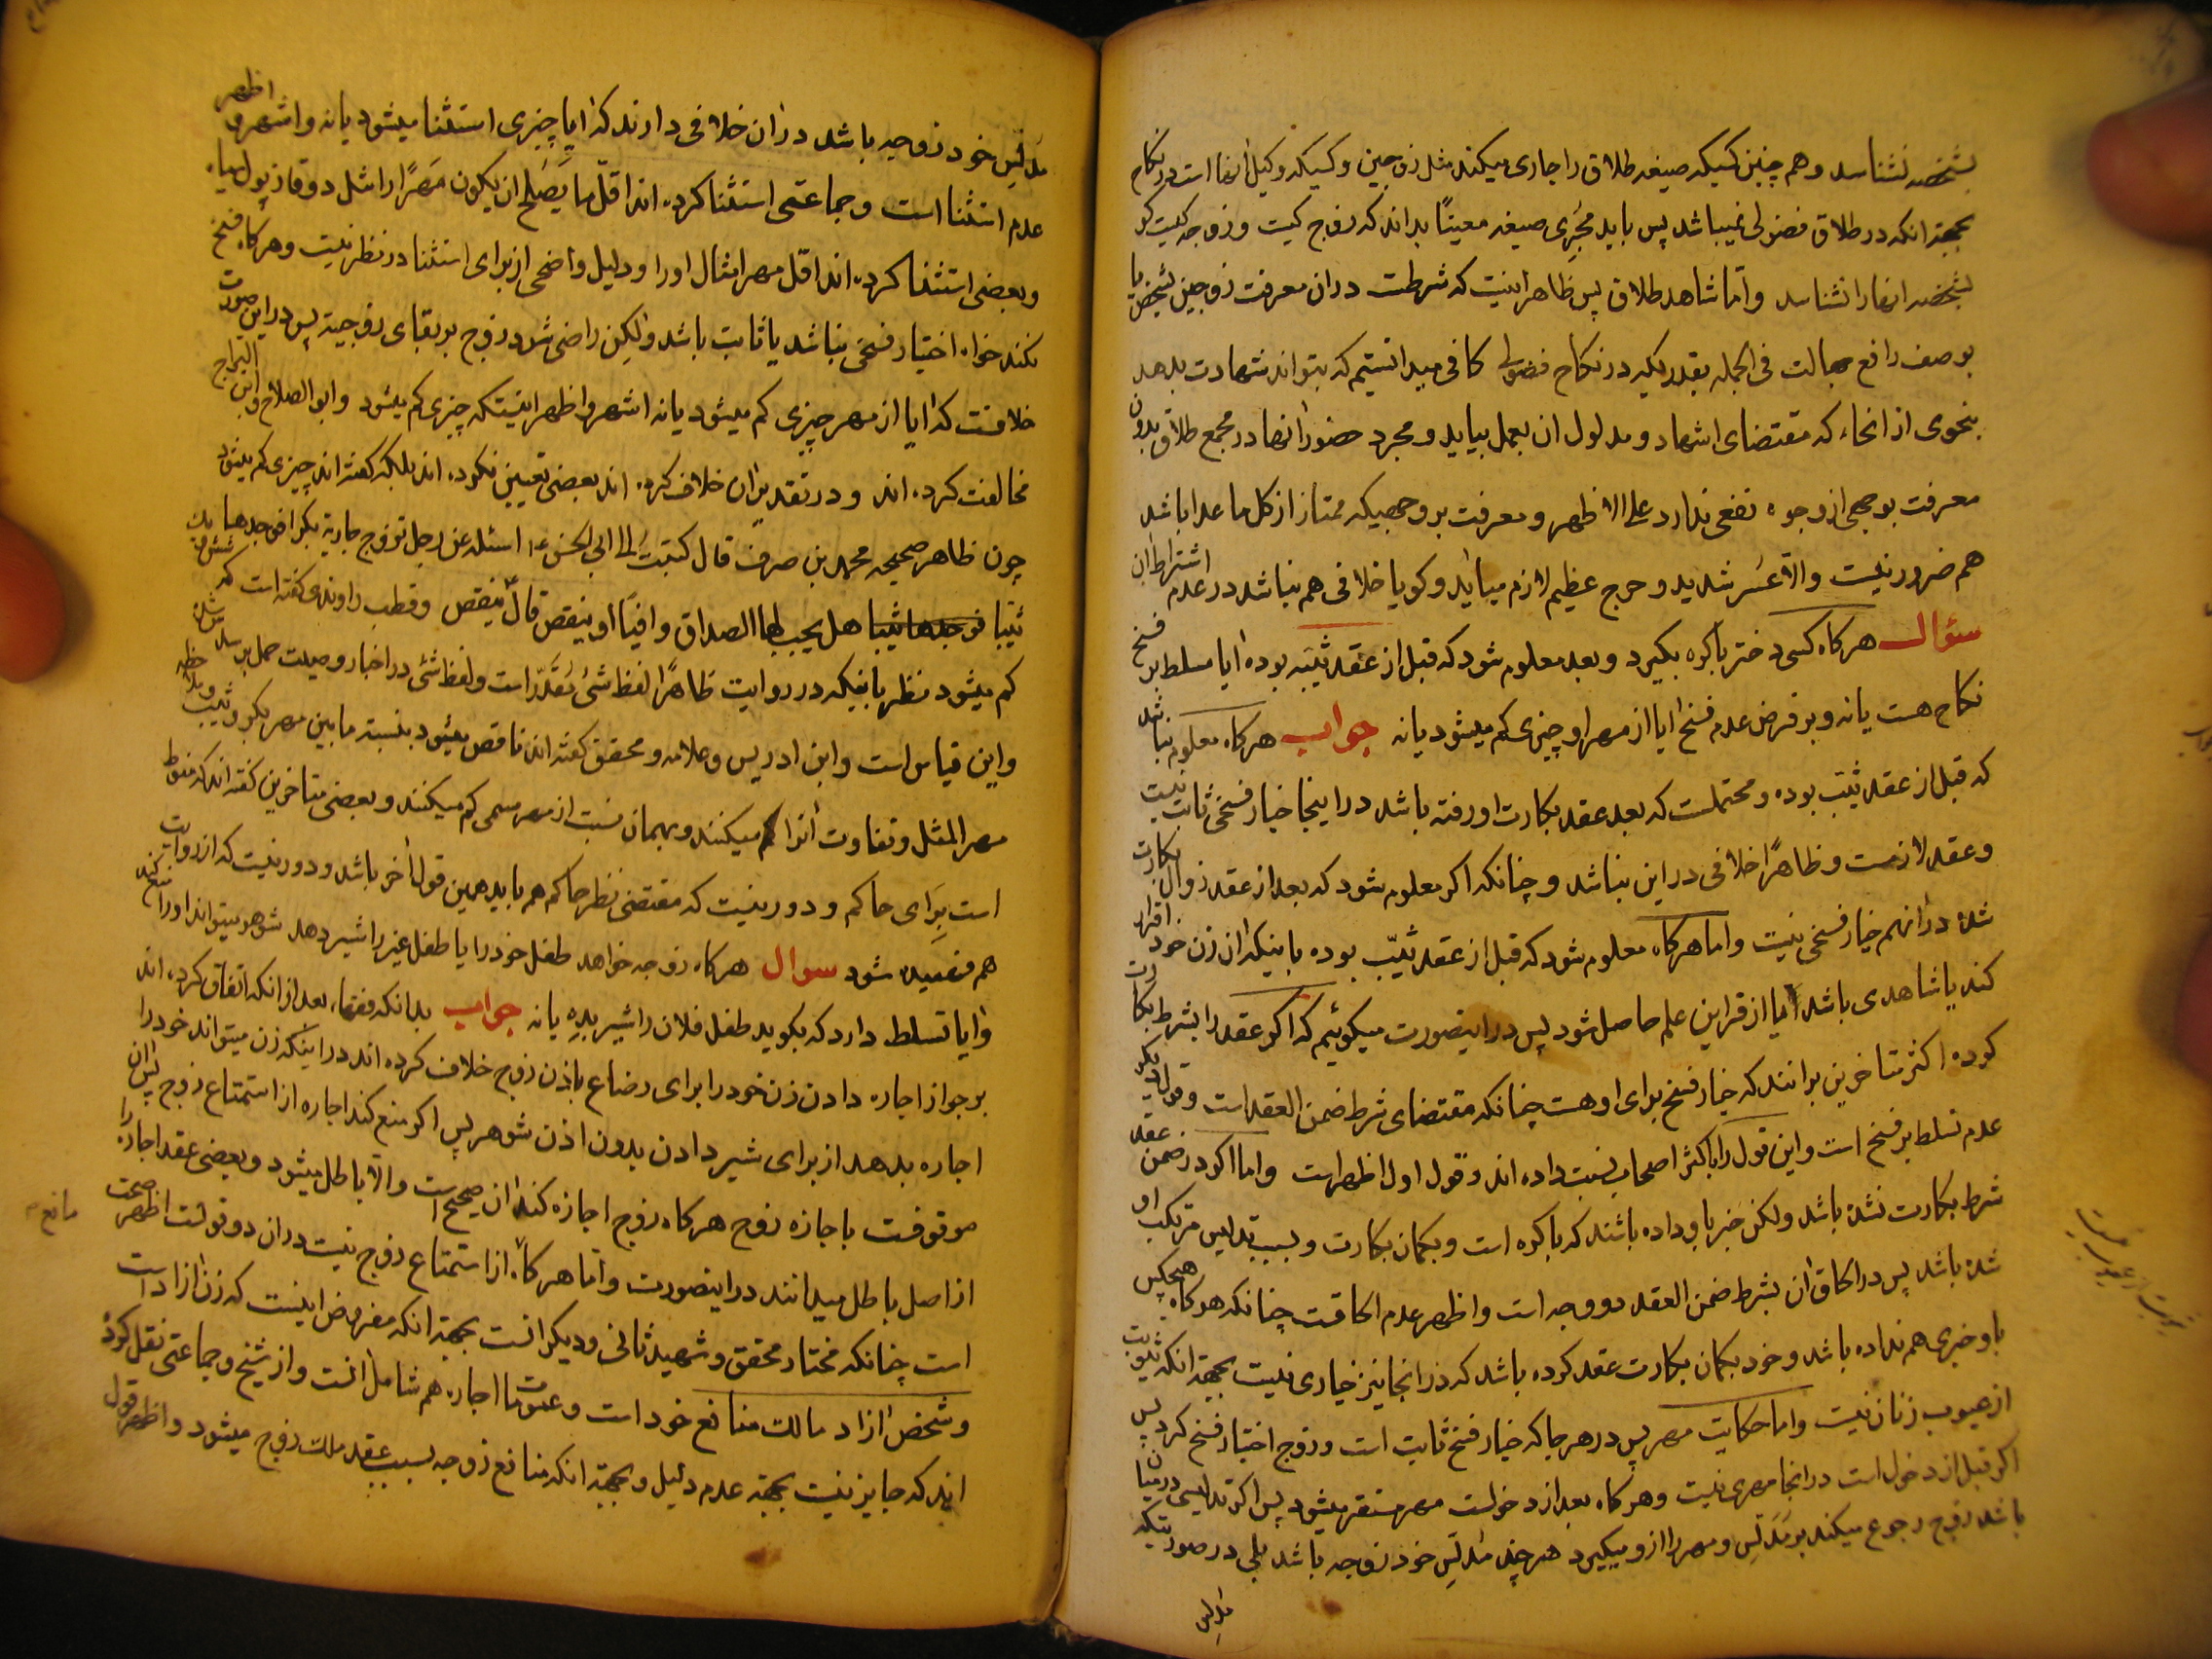 بشخصه نشناسد وهم چنین کسیکه صیغه طلاق را جاری میکند مثل زوجین وکسیکه وکیل انها است در نکاح
بجهة انکه در طلاق فضولی نمیباشد پس باید مجری صیغه معینًا بداند که زوج کیست وزوجه کیست کو
بشخصه انها را نشناسد واما شاهد طلاق پس ظاهر اینست که شرطست دران معرفت زوجین بشخص یا
بوصف رافع جهالت فی الجمله بقدریکه در نکاح فضولی کافی میدانستیم که بتواند شهادت بدهد
بنحوی از انحاء که مقتضای اشهاد ومدلول ان بعمل بیاید ومجرد حضور انها در مجمع طلاق بدون
معرفت بوجهی از وجوه نفعی ندارد علی الاظهر ومعرفت بر وجهیکه ممتاز از کل ما عدا باشد
هم ضرور نیست والا عسر شدید وحرج عظیم لازم میاید وکویا خلافی هم نباشد در عدم اشتراط ان
سئوال هرکاه کسی دختر باکره بکیرد وبعد معلوم شود که قبل از عقد ثیبه بوده ایا مسلط بر فسخ
نکاح هست یا نه وبر فرض عدم فسخ ایا از مهر او چیزی کم میشود یا نه جواب هرکاه معلوم نباشد
که قبل از عقد ثیب بوده ومحتملست که بعد عقد بکارت او رفته باشد در اینجا خیار فسخی ثابت نیست
وعقد لازمست وظاهرًا خلافی در این نباشد وچنانکه اکر معلوم شود که بعد از عقد زوال بکارت
شده در انهم خیار فسخی نیست واما هرکاه معلوم شود که قبل از عقد ثیب بوده باینکه ان زن خود اقرار
کند یا شاهدی باشد ایا از قراین علم حاصل شود پس در اینصورت میکوئیم که اکر عقد را بشرط بکارت
کرده اکثر متاخرین برانند که خیار فسخ برای او هست چنانکه مقتضای شرط ضمن العقد است وقول دیکر
عدم تسلط بر فسخ است واین قول را باکثر اصحاب نسبت داده اند وقول اول اظهر است واما اکر در ضمن عقد
شرط بکارت نشده باشد ولکن خبر باو داده باشند که باکره است وبکمان بکارت وبسبب تدلیس مرتکب او
شده باشد پس در الحاق ان بشرط ضمن العقد دو وجه است واظهر عدم الحاقست چنانکه هرکاه هیچکس
باو خبری هم نداده باشد وخود بکمان بکارت عقد کرده باشد که در انجا نیز خیاری نیست بجهة انکه ثیوبت
از عیوب زنان نیست واما حکایت مهر پس در هر جا که خیار فسخ ثابت است وزوج اختیار فسخ کرد پس
اکر قبل از دخول است در انجا مهری نیست وهرکاه بعد از دخولست مهر مستقر میشود پس اکر تدلیسی در میان
باشد زوج رجوع میکند بر مدلس ومهر را ازو میکیرد هر چند مدلس خود زوجه باشد بلی در صورتیکه
مدلس
مدلس خود زوجه باشد دران خلافی دارند که ایا چیزی استثنا میشود یا نه واشهر واظهر
عدم استثنا است وجماعتی استثنا کرده اند اقل ما یصلح ان یکون مهرًا را
وبعضی استثنا کرده اند اقل مهر امثال او را ودلیل واضحی از برای استثنا در نظر نیست وهرکاه فسخ
نکند خواه اختیار فسخی نباشد یا ثابت باشد ولکن راضی شود زوج بر بقای زوجیة پس در این صورت
خلافست که ایا از مهر چیزی کم میشود یا نه اشهر واظهر اینستکه چیزی کم میشود وابو الصلاح وابن البراج
مخالفت کرده اند ودر تقدیر ان خلاف کرده اند بعضی تعیین نکرده اند بلکه کفته اند چیزی کم میشود
چون ظاهر صحیحه محمد بن صرف قال کتبت الی ابی الحسن ع اسئله عن رجل تزوج جاریة بکرا فوجدها
ثیبا فوجدها ثیبا هل یجب لها الصداق وافیًا او ینقص قال ینقص وقطب راوندی کفته است که
کم میشود نظر باینکه در روایت ظاهرًا لفظ شئ مقدر است ولفظ شئ در اخبار وصیت حمل بر سدس شده
واین قیاس است وابن ادریس وعلامه ومحقق کفته اند ناقص میشود بنسبة ما بین مهر بکر وثیب
مهر المثل وتفاوت انرا کم میکنند وبهمان نسبت از مهر مسمی کم میکنند وبعضی متاخرین کفته اند که منوط
است برای حاکم ودور نیست که مقتضی نظر حاکم هم باید همین قول اخر باشد ودور نیست که از روایت
هم فهمیده شود سوال هرکاه زوجه خواهد طفل خود را یا طفل غیر را شیر دهد شوهر میتواند او را منع کند
وایا تسلط دارد که بکوید طفل فلان را شیر بده یا نه جواب بدانکه فقها بعد از انکه اتفاق کرده اند
بر جواز اجاره دادن زن خود را برای رضاع باذن زوج خلاف کرده اند در اینکه زن میتواند خود را
اجاره بدهد از برای شیر دادن بدون اذن شوهر پس اکر منع کند اجاره از استمتاع زوج پس ان
موقوفست باجازه زوج هرکاه زوج اجازه کند ان صحیح است والا باطل میشود وبعضی عقد اجاره را
از اصل باطل میدانند در اینصورت واما هرکاه از استمتاع زوج نیست دران دو قولست اظهر صحت
مانع
است چنانکه مختار محقق وشهید ثانی ودیکر انست بجهة انکه مفروض اینست که زن ازاد است
وشخص ازاد مالک منافع خود است وعمومات اجاره هم شامل انست واز شیخ وجماعتی نقل کرده
اند که جایز نیست بجهة عدم دلیل وبجهة انکه منافع زوجه بسبب عقد ملک زوج میشود واظهر قول